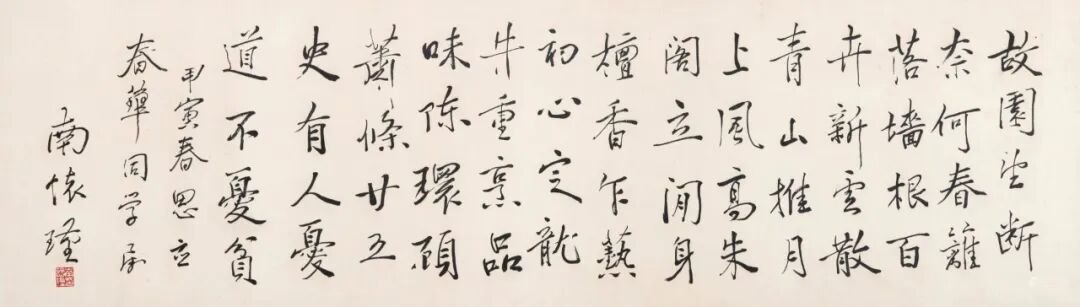 故園望断
奈何春離
落墻根百
卉新雲散
青山推月
上風高朱
阁立閒身
檀香乍爇
初心定龍
井重烹品
味陳環顾
蕭條廿五
史有人憂
道不憂貧
甲寅春思应
春華同学属
南懷瑾